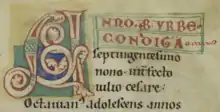 ANNO AB VRBE
CONDITA
septingentesimo
nono. int̄fecto
iulio cesare.
Octauian᾽ adolescens annos